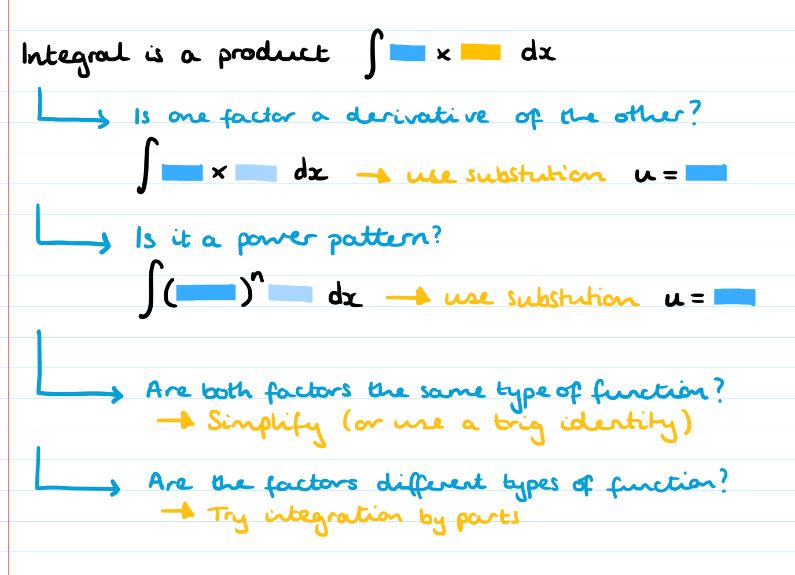 Integral is a product ∫ × dx
Is one factor a derivative of the other?
∫ × dx → use substution u =
Is it a power pattern?
∫( )ⁿ dx → use substution u =
Are both factors the same type of function?
→ Simplify (or use a trig identity)
Are the factors different types of function?
→ Try integration by parts